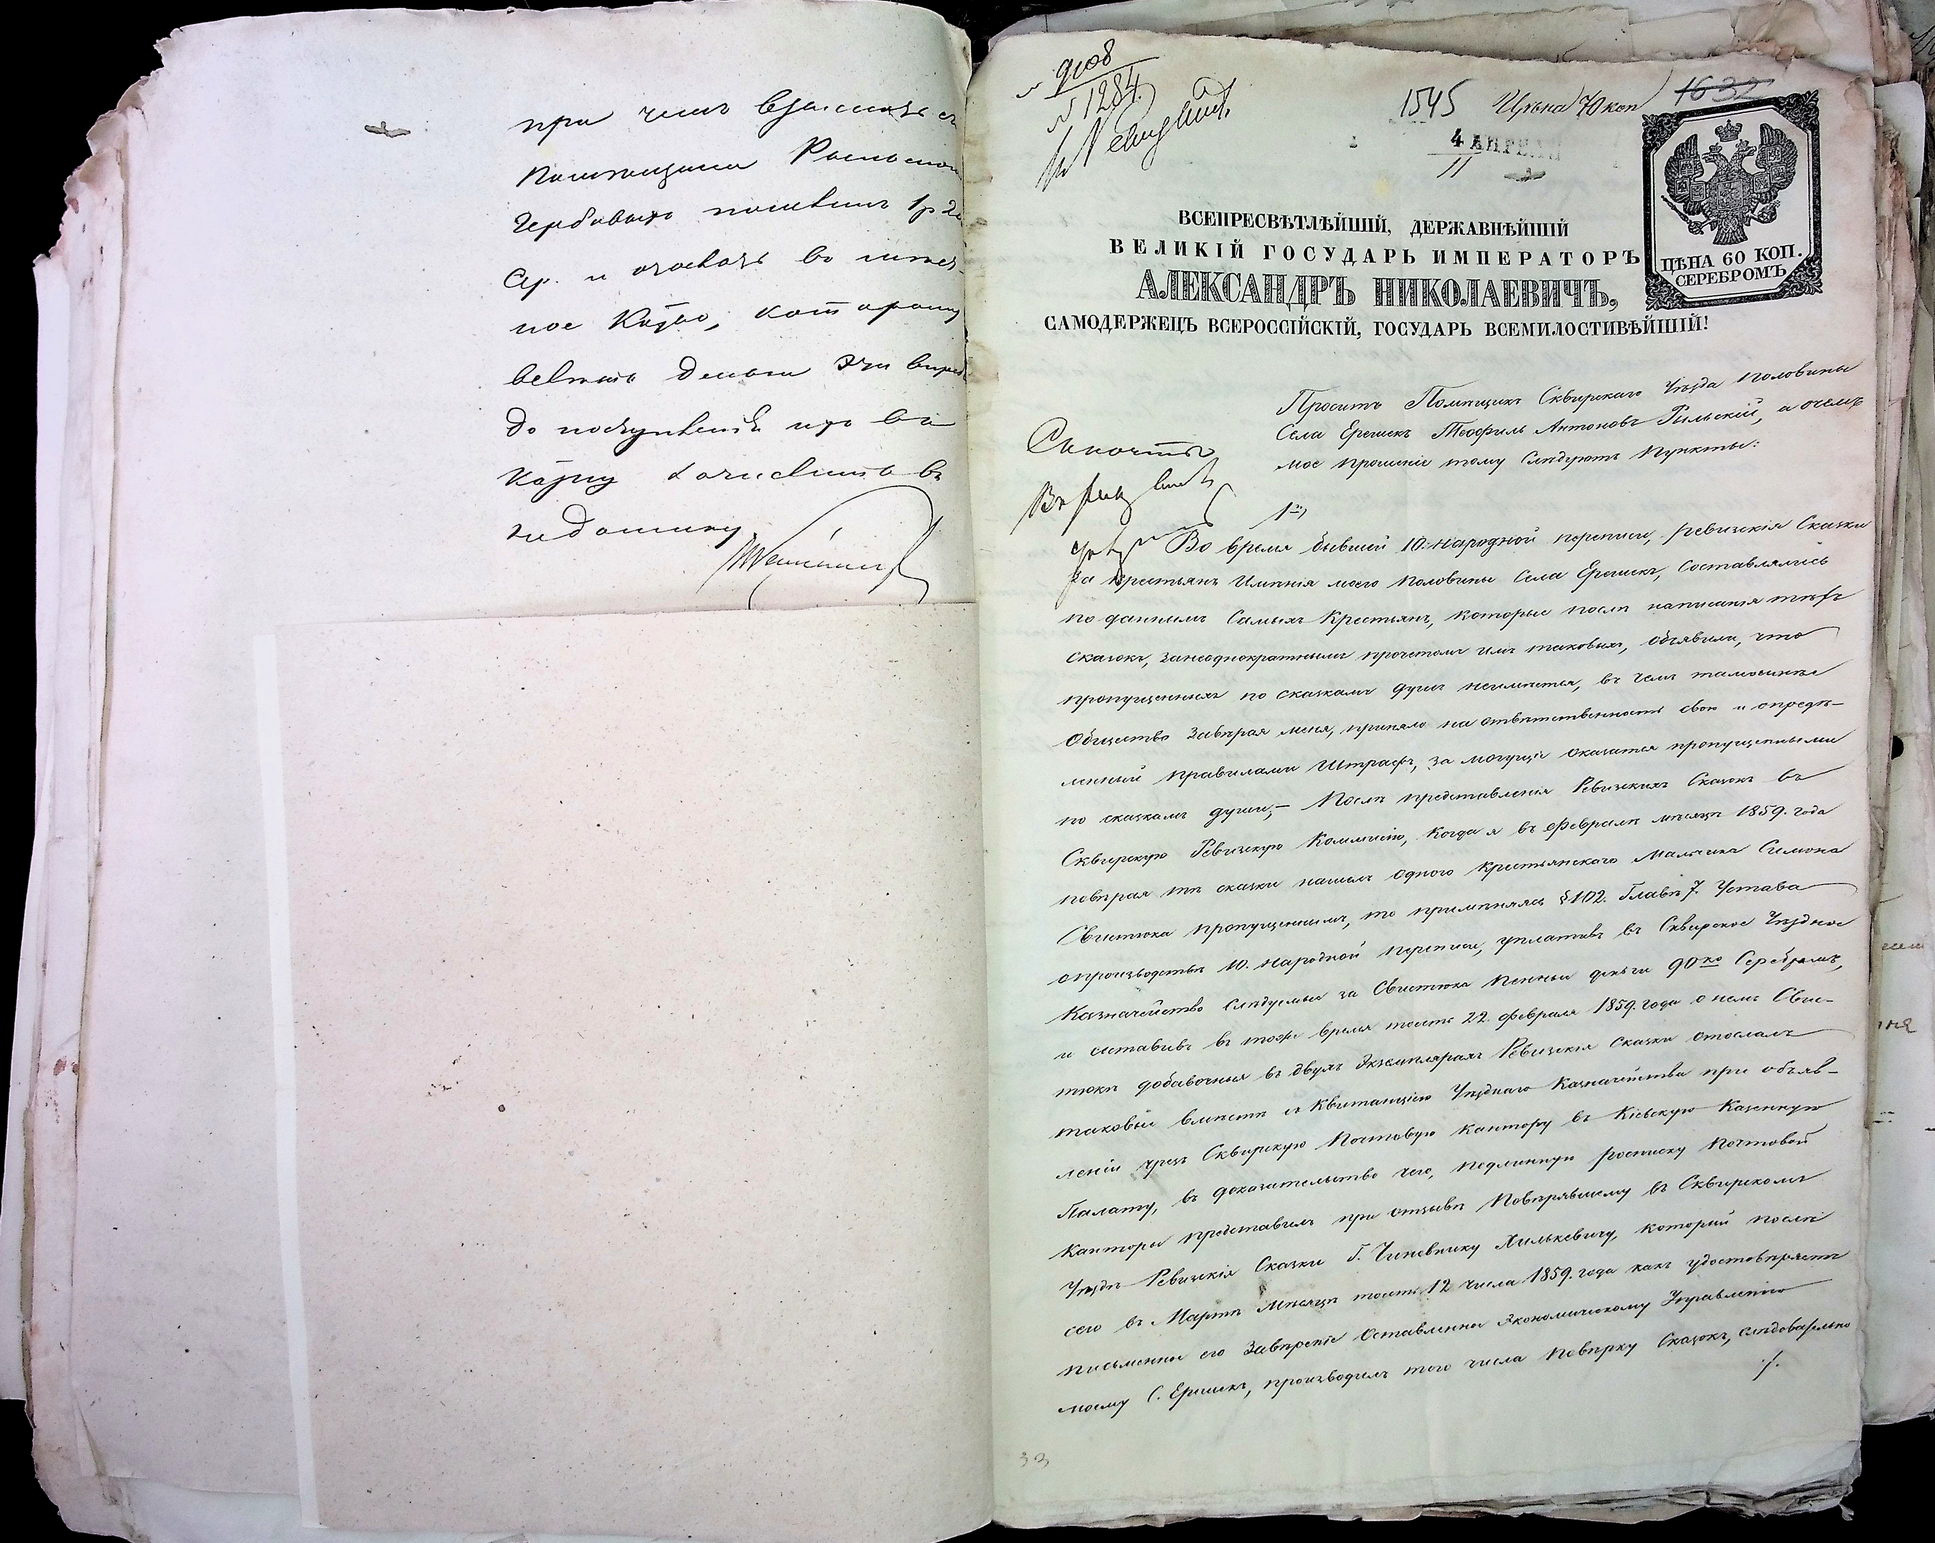 при чемъ взыскать съ
Помещика
Гербовыхъ пошлинъ 1 р 20
Сер. и отослать въ
ное Казн., которому
велеть деньги эти впредь
до поступленія ихъ въ
казну зачислить въ
недоимку
9108
№ 1284
1545 Цѣна 70 коп 1632
4 АПРЕЛЯ
11
ЦѢНА 60 КОП.
СЕРЕБРОМЪ
ВСЕПРЕСВѢТЛѢЙШІЙ, ДЕРЖАВНѢЙШІЙ
ВЕЛИКІЙ ГОСУДАРЬ ИМПЕРАТОРЪ
АЛЕКСАНДРЪ НИКОЛАЕВИЧЪ,
САМОДЕРЖЕЦЪ ВСЕРОССІЙСКІЙ, ГОСУДАРЬ ВСЕМИЛОСТИВѢЙШІЙ!
Проситъ Помѣщикъ Сквирскаго Уѣзда половины
Села Ерчикъ Теофиль Антоновъ Рыльскій, а о чемъ
мое прошеніе тому слѣдуютъ пункты:
1е,
Во время бывшей 10. народной переписи, ревизскія Сказки
за крестьянъ имѣнія моего половины Села Ерчикъ, составлялись
по даннымъ самыхъ крестьянъ, которые послѣ написанія тѣхъ
сказокъ, занеоднократнымъ прочетомъ имъ таковыхъ, объявили, что
пропущенныхъ по сказкамъ душъ неимѣется, въ чемъ тамошнее
Общество завѣряя меня, приняло на отвѣтственность свою и опредѣ-
ленный правилами Штрафъ, за могущіе оказатся пропущенными
по сказкамъ души,- Послѣ представленія Ревизскихъ Сказокъ въ
Сквирскую Ревизскую Коммисію, когда я въ Февралѣ мѣсяцѣ 1859. года
повѣряя тѣ сказки нашелъ одного крестьянскаго мальчика Симона
Свистюка пропущеннымъ, то примѣняясь §102. Главѣ 7. Устава
опроизводствѣ 10. народной переписи, уплативъ въ Сквирское Уѣздное
Казначейство слѣдуемыя за Свистюка пенныи деньги 90ко Серебромъ,
и составивъ въ тоже время тоесть 22. Февраля 1859. года о немъ Свис-
тюкѣ добавочныя въ двухъ экземплярахъ Ревизскія сказки отослалъ
таковыи вмѣстѣ съ квитанціею Уѣзднаго Казначейства при объяв-
леніи чрезъ Сквирскую Почтовую Кантору въ Кіевскую Казенную
Палату, въ доказательство чего, подлинную росписку Почтовой
Канторы представилъ при отзывѣ Повѣрявшему въ Сквирскомъ
Уѣздѣ Ревизскія Сказки Г. Чиновнику Хилькевичу, который послѣ
сего въ Мартѣ мѣсяцѣ тоесть 12 числа 1859. года какъ удостовѣряетъ
письменное его завѣреніе Оставленное Экономическому Управленію
моему С. Ерчикъ, производилъ того числа повѣрку Сказокъ, слѣдовательно
./.
33